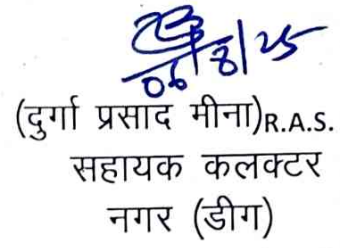 06/8/25
(दुर्गा प्रसाद मीना)R.A.S.
सहायक कलक्टर
नगर (डीग)